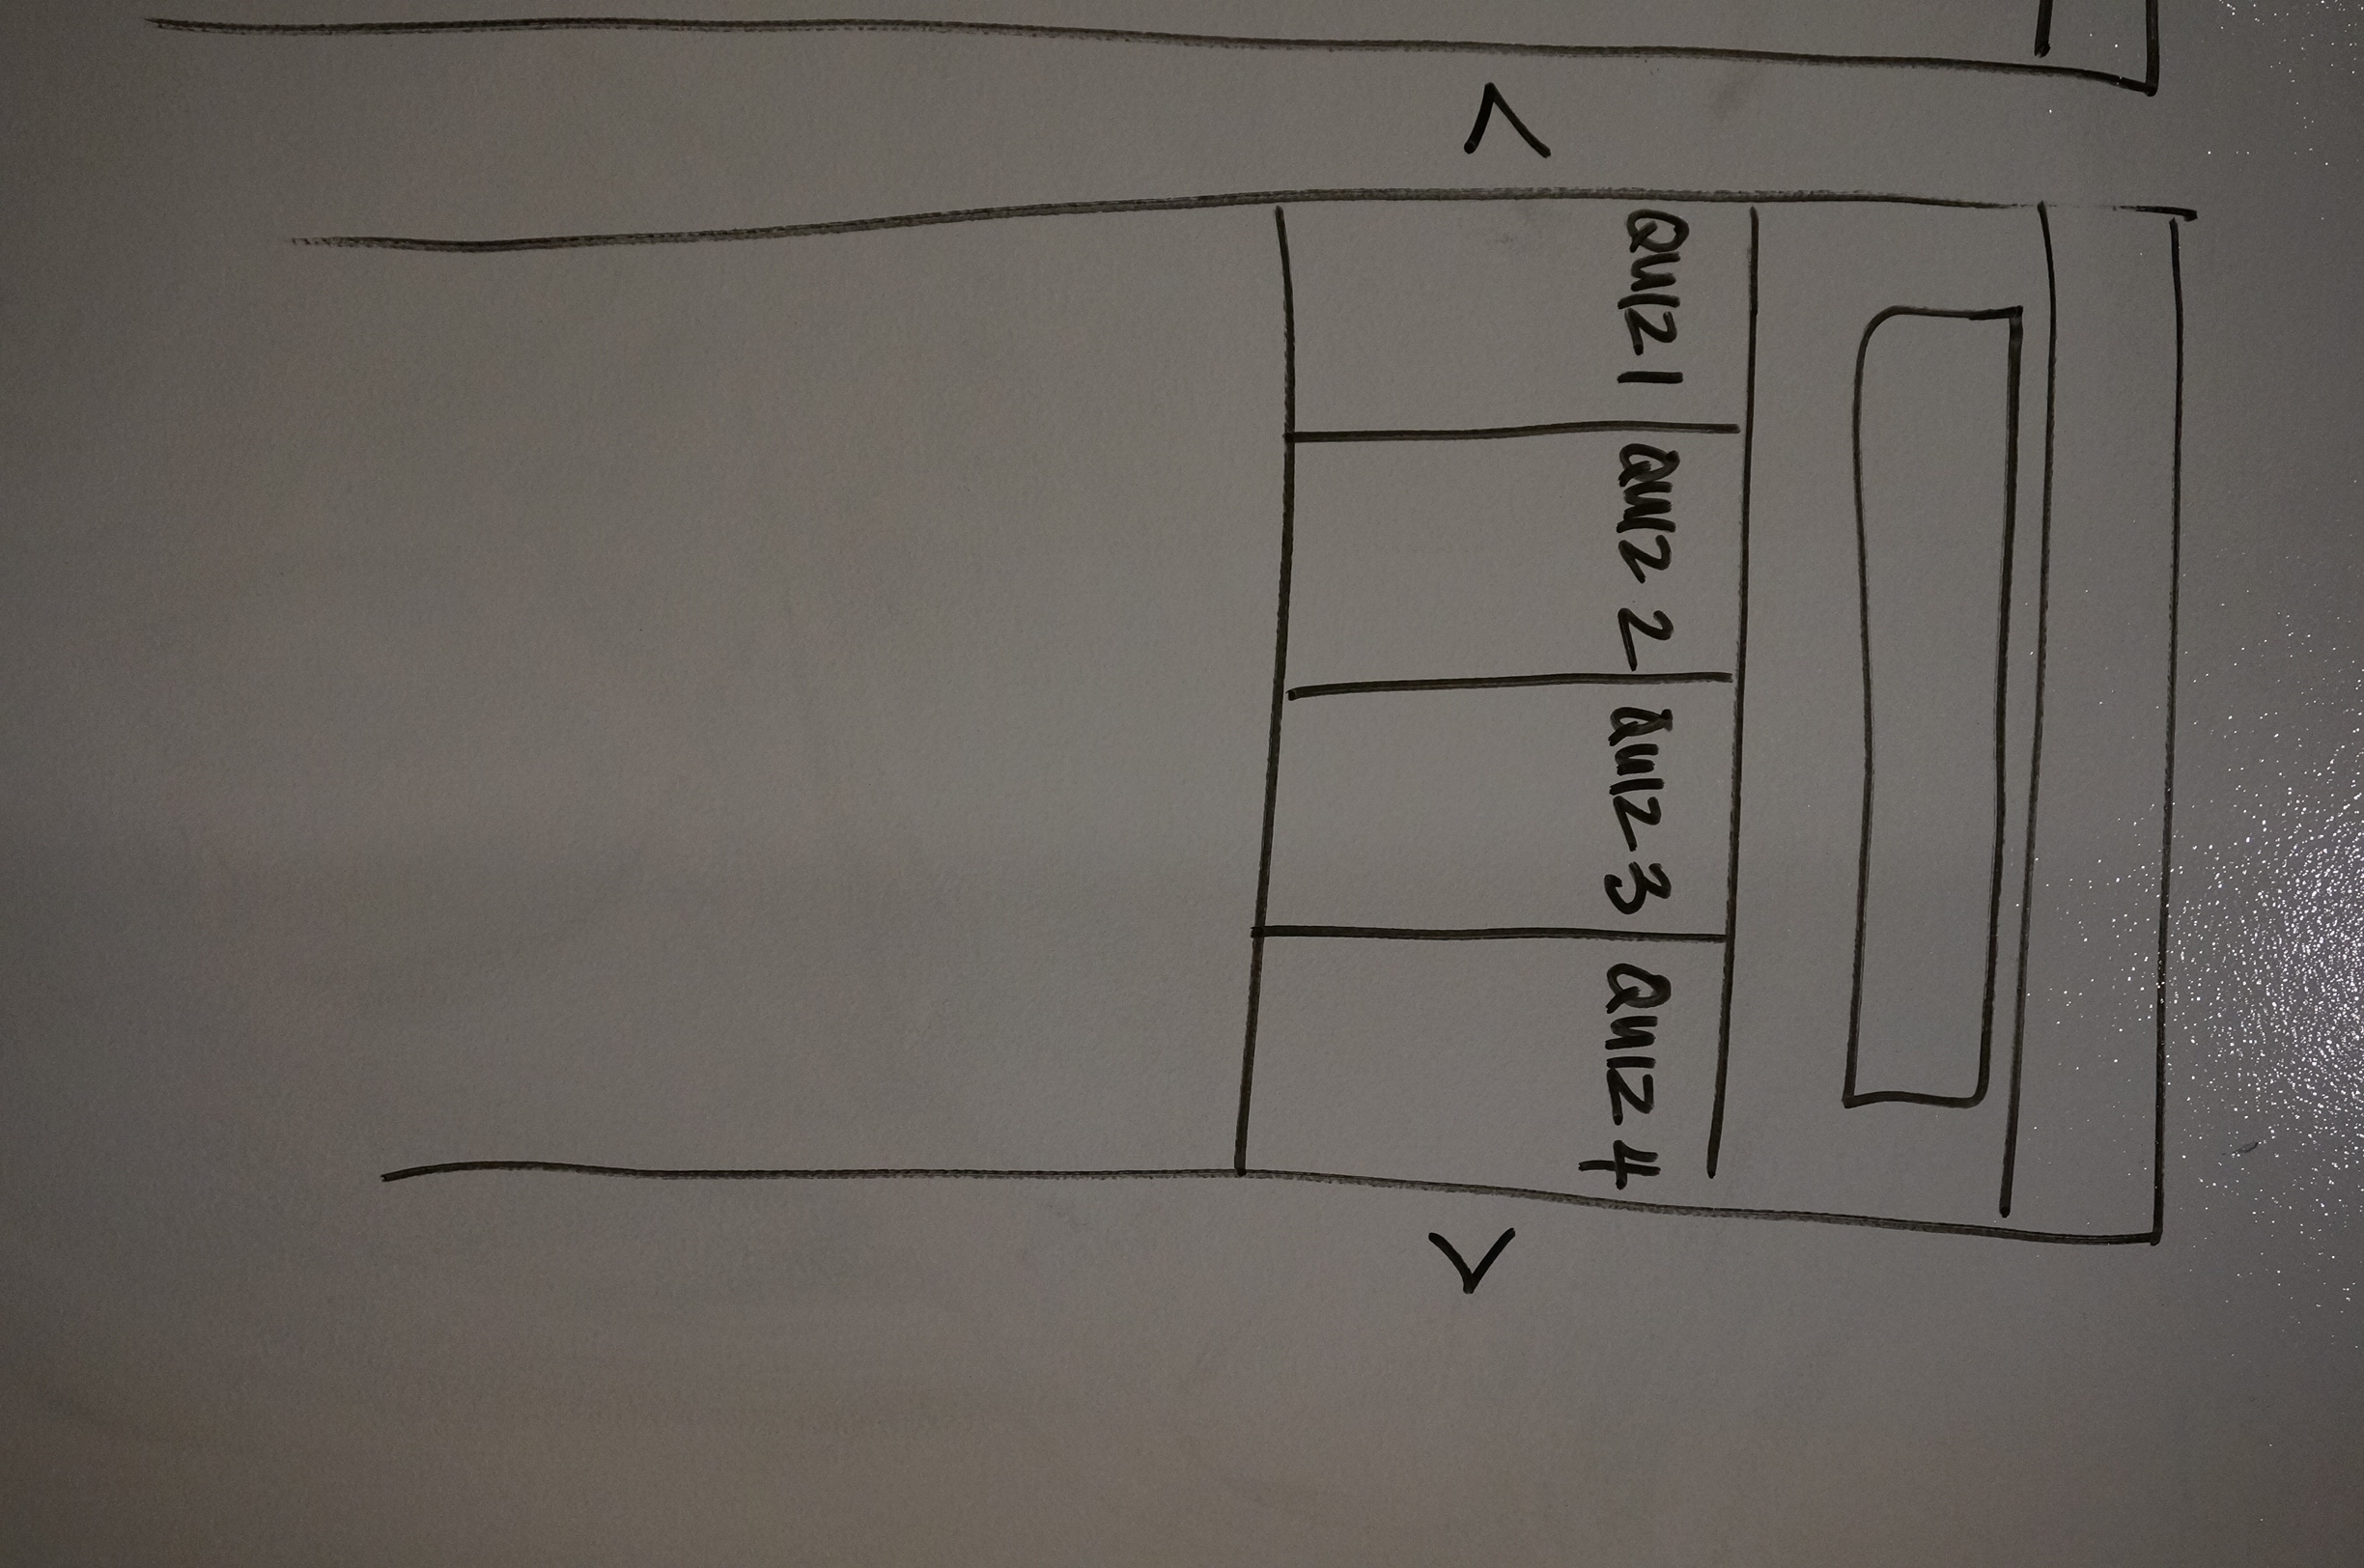 QUIZ 1 QUIZ 2 QUIZ 3 QUIZ 4
< >